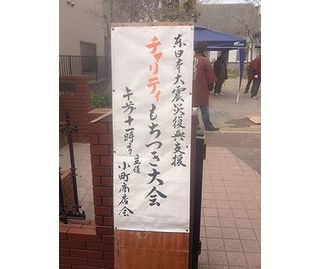 東日本大震災復興支援
チャリティもちつき大会
午前十一時より
主催 小町商店会